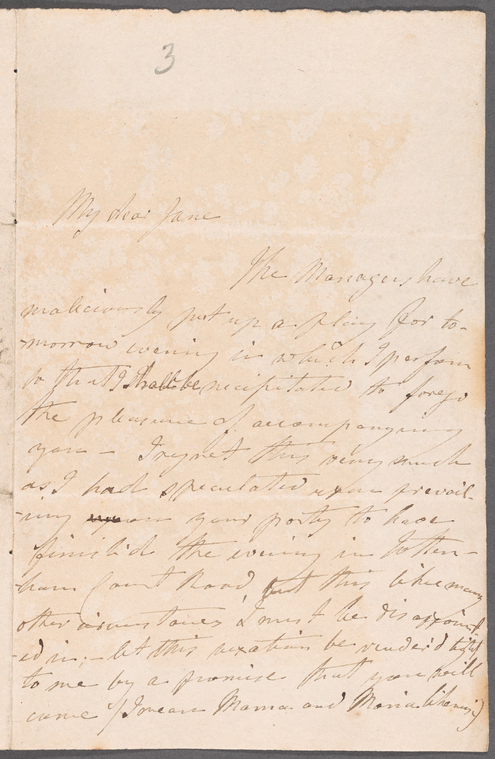 3
My dear Jane
The Managers have
maliciously put up a play for to-
-morrow evening in which I perform
so that I shall be necessitated to forego
the pleasure of accompanying
you - I regret this very much
as I had speculated upon prevail-
-ing upon your party to have
finish'd the evening in Totten-
-ham Court Road, but this like many
other circumstances I must be disappoint
-ed in; - let this vexation be render'd light
to me by a promise that you will
come (I mean Mama and Maria likewise)